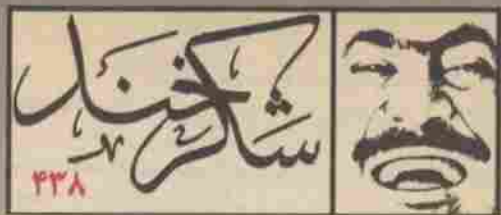 شکرخند
۴۳۸